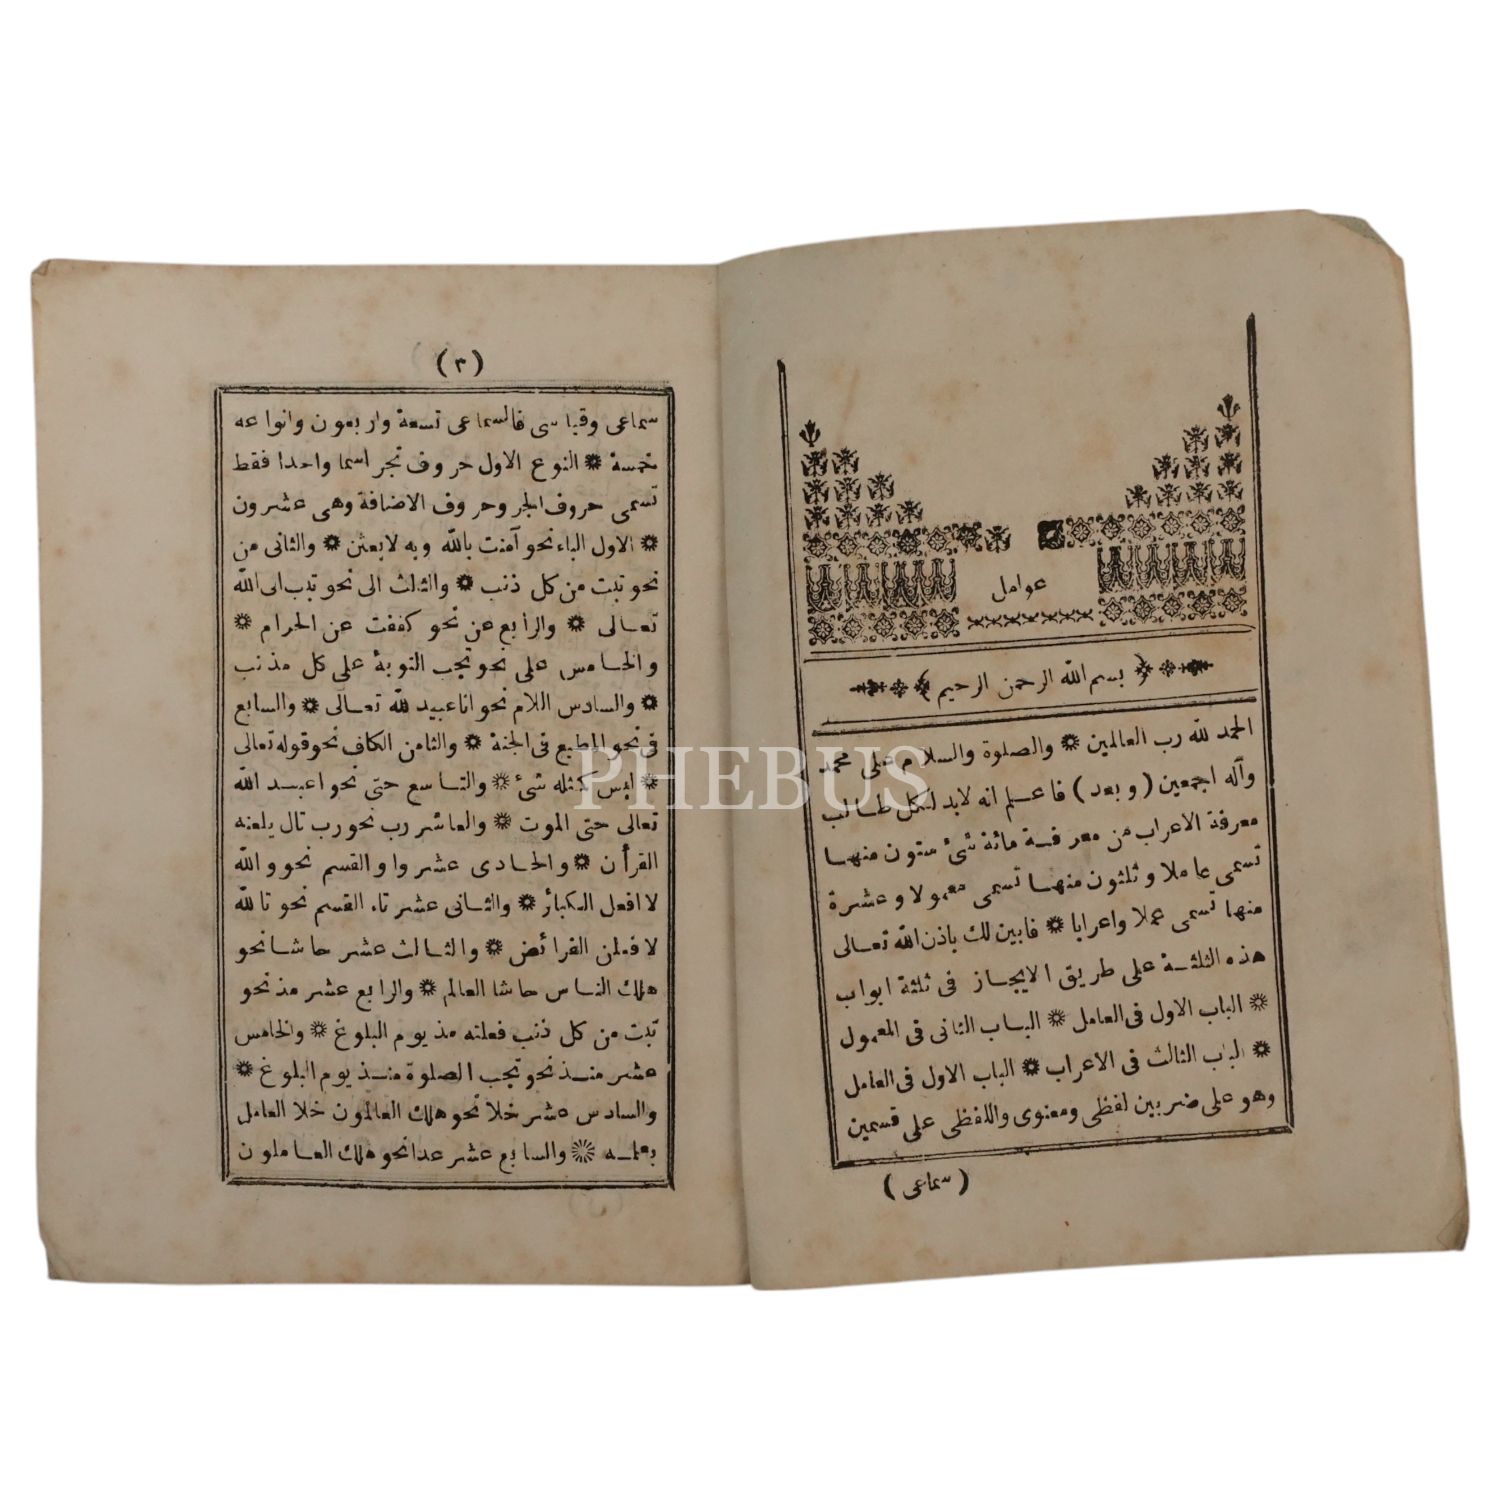 عوامل
﴿ بسم الله الرحمن الرحيم ﴾
الحمد لله رب العالمين ❋ والصلوة والسلام على محمد
وآله اجمعين ( وبعد ) فاعلم انه لابد لكل طالب
معرفة الاعراب من معرفة مائة شئ ستون منها
تسمى عاملا وثلثون منها تسمى معمولا وعشرة
منها تسمى عملا واعرابا ❋ فابين لك باذن الله تعالى
هذه الثلثة على طريق الايجاز فى ثلثة ابواب
❋ الباب الاول فى العامل ❋ الباب الثانى فى المعمول
❋ الباب الثالث فى الاعراب ❋ الباب الاول فى العامل
وهو على ضربين لفظى ومعنوى واللفظى على قسمين
( سماعى )
( ٣ )
سماعى وقياسى فالسماعى تسعة واربعون وانواعه
خمسة ❋ النوع الاول حروف تجر اسما واحدا فقط
تسمى حروف الجر وحروف الاضافة وهى عشرون
❋ الاول الباء نحو آمنت بالله وبه لابعثن ❋ والثانى من
نحو تبت من كل ذنب ❋ والثالث الى نحو تبت الى الله
تعالى ❋ والرابع عن نحو كففت عن الحرام ❋
والخامس على نحو تجب التوبة على كل مذنب
❋ والسادس اللام نحو انا عبيد لله تعالى ❋ والسابع
فى نحو المطيع فى الجنة ❋ والثامن الكاف نحو قوله تعالى
❋ ليس كمثله شئ ❋ والتاسع حتى نحو اعبد الله
تعالى حتى الموت ❋ والعاشر رب نحو رب تال يلعنه
القرأن ❋ والحادى عشر واو القسم نحو والله
لا افعل الكبائر ❋ والثانى عشر تاء القسم نحو تالله
لافعلن الفرائض ❋ والثالث عشر حاشا نحو
هلك الناس حاشا العالم ❋ والرابع عشر مذ نحو
تبت من كل ذنب فعلته مذ يوم البلوغ ❋ والخامس
عشر منذ نحو تجب الصلوة منذ يوم البلوغ ❋
والسادس عشر خلا نحو هلك العالمون خلا العامل
بعلمه ❋ والسابع عشر عدا نحو هلك العاملون
PHEBUS